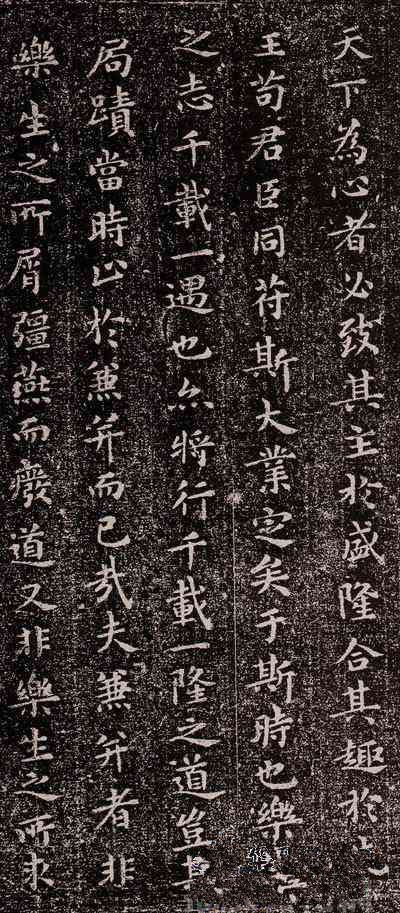 天下為心者必致其主於盛隆合其趣於
王苟君臣同符斯大業定矣于斯時也樂
之志千載一遇也亦將行千載一隆之道豈其
局蹟當時止於兼并而已哉夫兼并者非
樂生之所屑彊燕而廢道又非樂生之所求